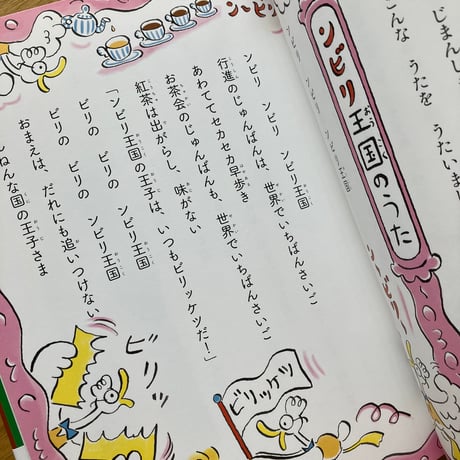 じまんし
こんな うたを うたいまし
ンビリ王国のうた
ンビリ ンビリ ンビリ王国
ンビリ ンビリ ンビリ王国
行進のじゅんばんは、世界でいちばんさいご
あわててセカセカ早歩き
お茶会のじゅんばんも、世界でいちばんさいご
紅茶は出がらし、味がない
「ンビリ王国の王子は、いつもビリッケツだ!」
ビリの ビリの ンビリ王国
ビリの ビリの ンビリ王国
おまえは、だれにも追いつけない
ねんな国の王子さま
ン〜ビリ
ビリッ
ビリッケツ